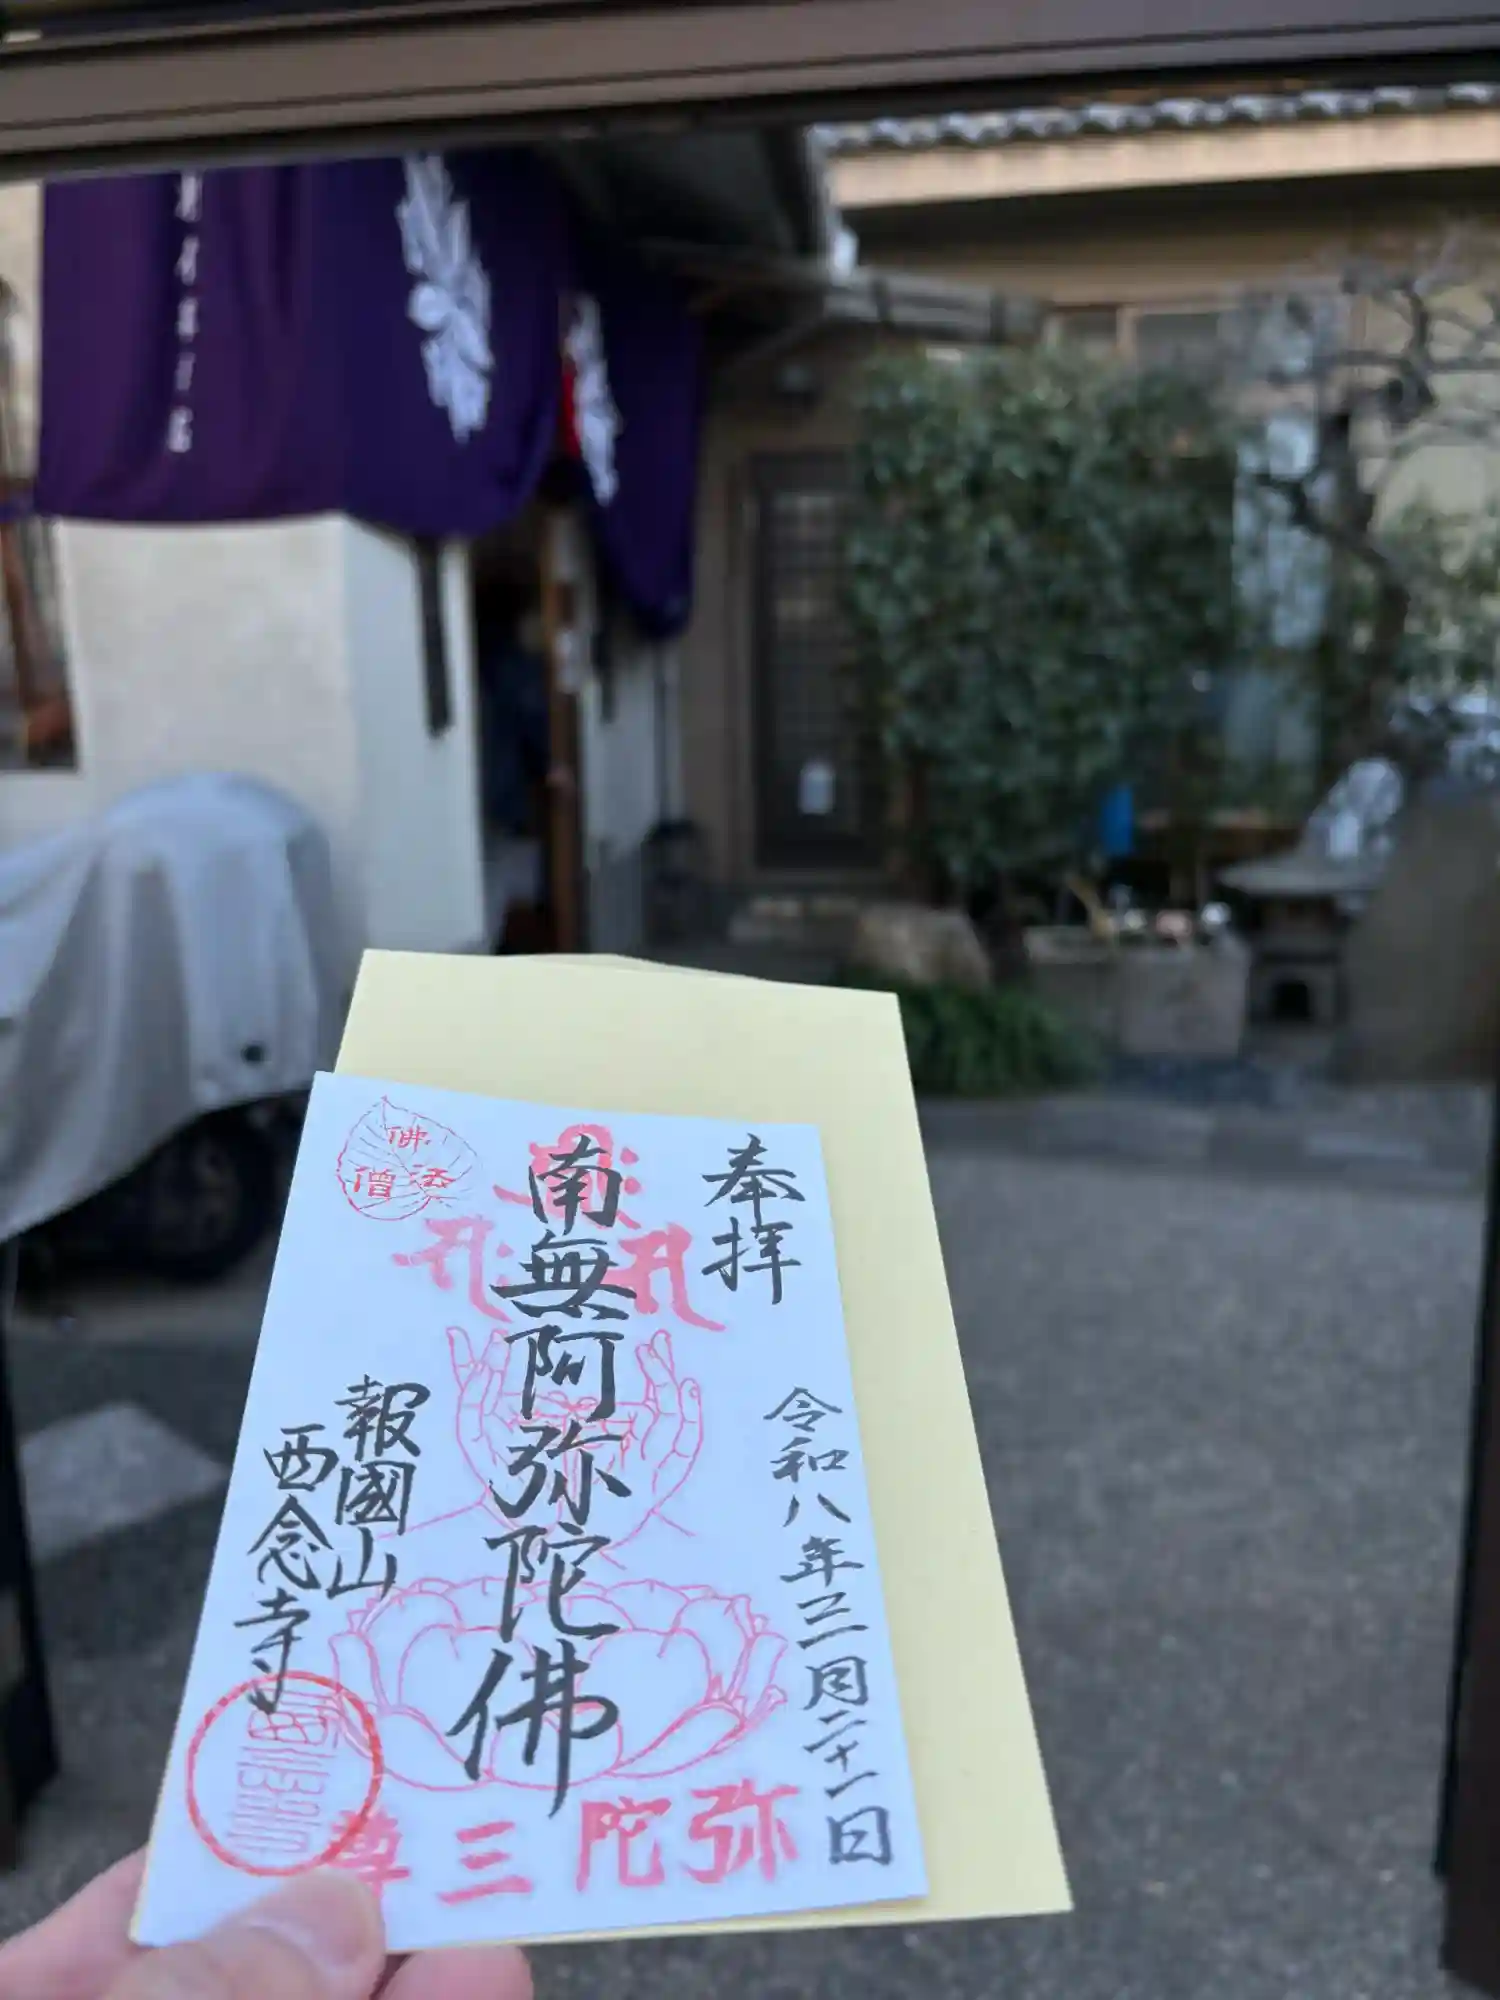 奉拝
令和八年三月二十一日
南無阿弥陀佛
報國山
西念寺
佛
法
僧
弥陀三尊